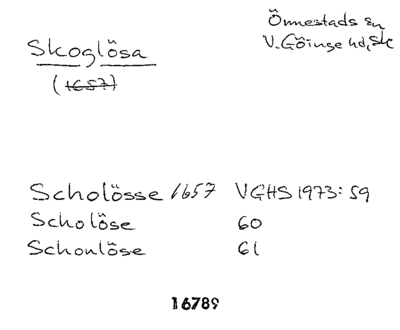 Skoglösa
(1657)
Önnestads sn
V. Göinge hd, Sk
Scholösse 1657 VGHS 1973: 59
Scholöse 60
Schonlöse 61
16789